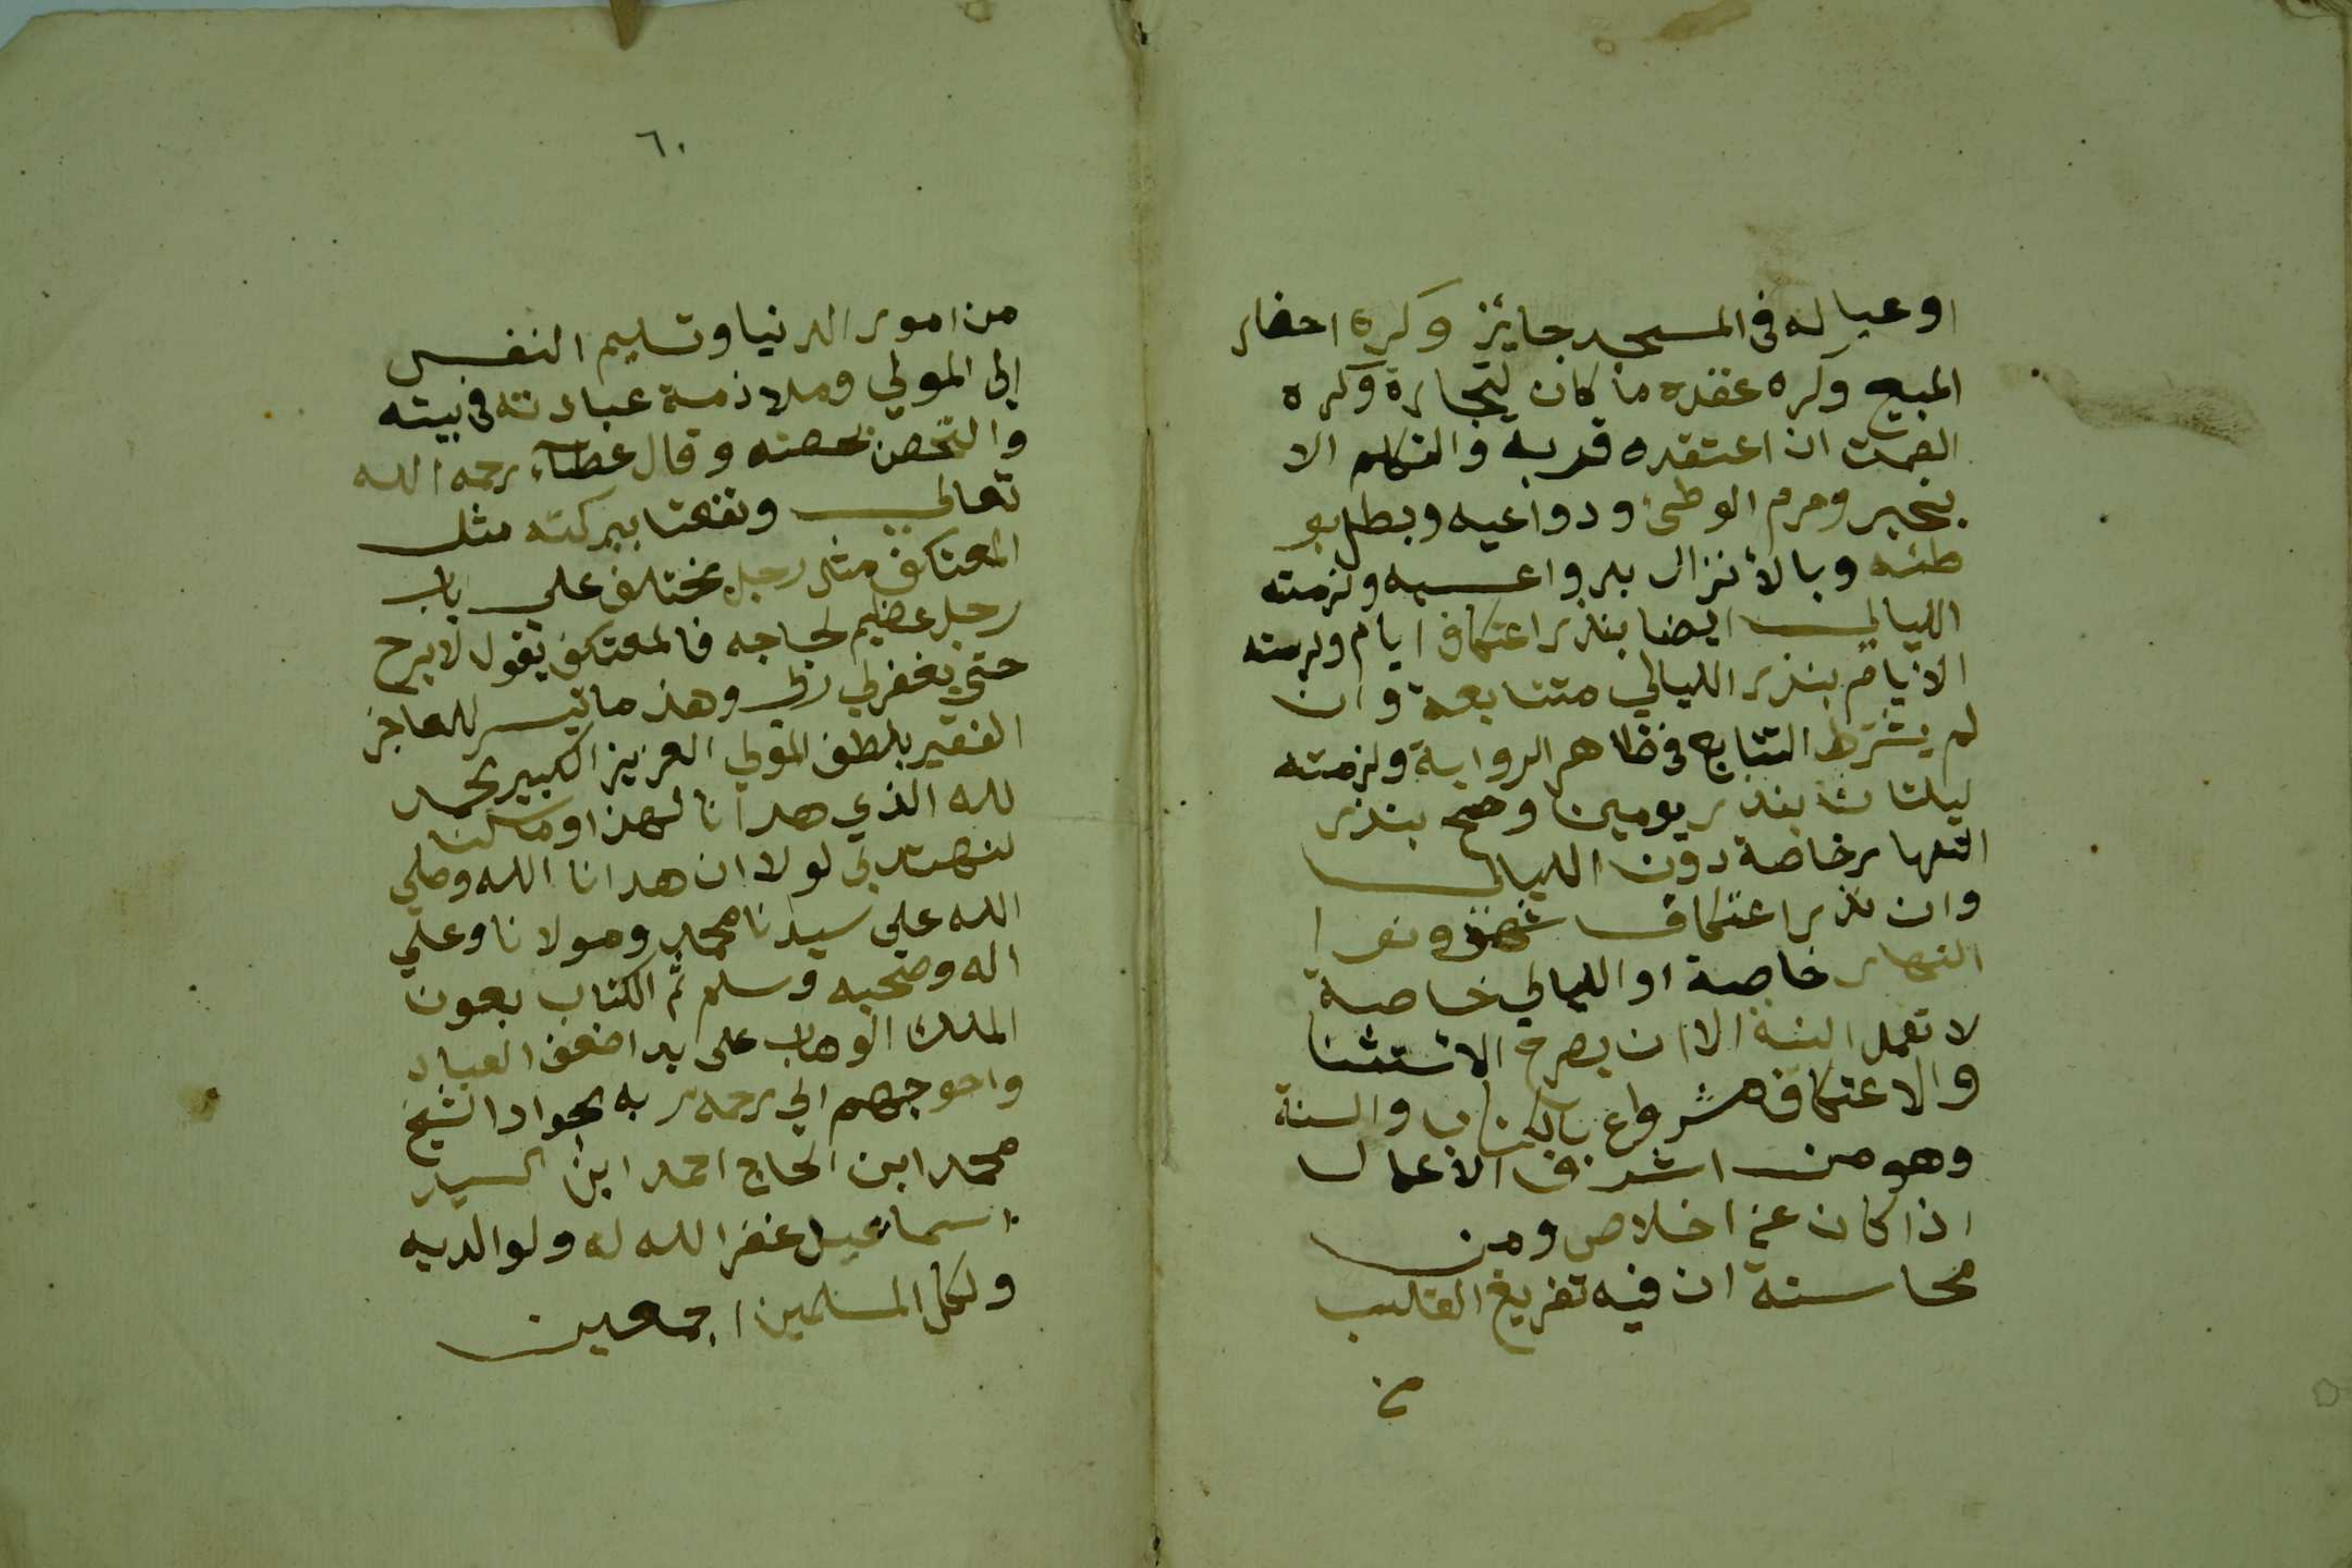 او عياله فى المسجد جائز وكره احضار
المبيع وكره عقده ما كان لتجارة وكره
الصمت ان اعتقده قربه والتكلم الا
بخير وحرم الوطئ ودواعيه وبطل بو
طئه وبالأنزال بدواعيه ولزمته
الليالي ايضا بنذر اعتكاف ايام ولزمته
الايام بنذر الليالي متتابعة وان
لم يشترط التتابع فى ظاهر الرواية ولزمته
ليلتان بنذر يومين وصح بنذر
النهار خاصة دون الليالى
وان نذر اعتكاف شهر ونوا
النهار خاصة او الليالي خاصة
لا تعمل النية الا ان يصرح الاستثنا
والاعتكاف مشروع بالكتاب والسنة
وهو من اشرف الاعمال
اذا كان عن اخلاص ومن
محاسنة ان فيه تفريغ القلب
من
٦٠
من امور الدنيا وتسليم النفس
إلي المولي وملازمة عبادته فى بيته
والتحصن بحصنه وقال عطاء رحمه الله
تعالي ونفعنا ببركته مثل
المعتاكف مثل رجل يختلف علي باب
رجل عظيم لحاجه فالمعتكف يقول لا ابرح
حتي يغفر لي ربي وهذ ما تيسر للعاجز
الفقير بلطف المولي العزيز الكبير الحمد
لله الذي هدانا لهذا وما كنا
لنهتدي لولا ان هدانا الله وصلي
الله علي سيدنا محمد ومولانا وعلي
اله وصحبه وسلم تم الكتاب بعون
الملك الوهاب على يد اضعف العباد
واحوجهم الي رحمة ربه الجواد الشيخ
محمد ابن الحاج احمد ابن السيد
اسماعيل غفر الله له ولوالديه
ولكل المسلمين اجمعين